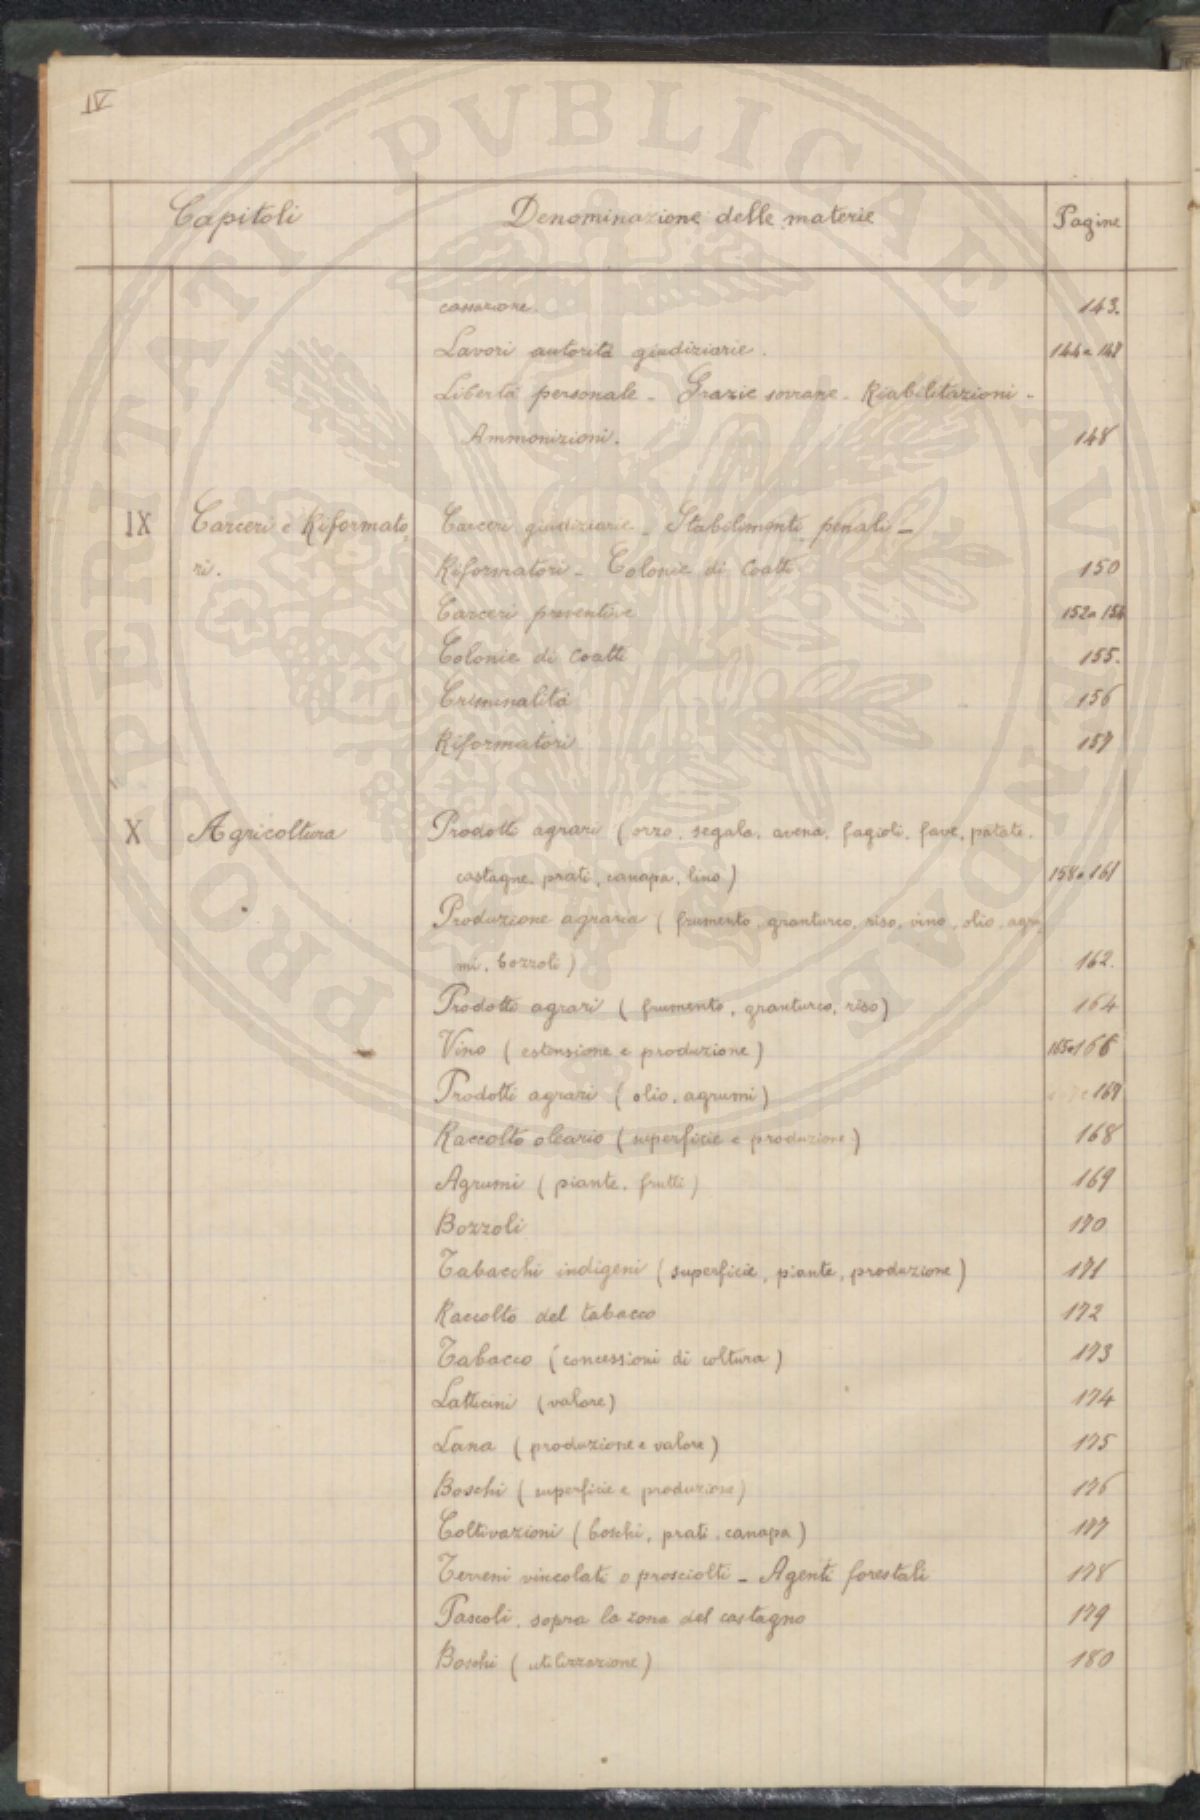 IV
Capitoli Denominazione delle materie Pagine
cassazione. 143.
Lavori autorità giudiziarie. 144 a 148
Libertà personale - Grazie sovrane - Riabilitazioni -
Ammonizioni. 148
IX Carceri e Riformato Carceri giudiziarie - Stabilimenti penali -
ri. Riformatori - Colonie di Coatti 150
Carceri preventive 152 a 154
Colonie di Coatti 155.
Criminalità 156
Riformatori 157
X Agricoltura Prodotti agrari (orzo, segala, avena, fagioli, fave, patate,
castagne, prati, canapa, lino) 158 a 161
Produzione agraria (frumento, granturco, riso, vino, olio, agru
mi, bozzoli) 162.
Prodotti agrari (frumento, granturco, riso) 164
Vino (estensione e produzione) 165 e 166
Prodotti agrari (olio, agrumi) e 167
Raccolto oleario (superficie e produzione) 168
Agrumi (piante, frutti) 169
Bozzoli 170
Tabacchi indigeni (superficie, piante, produzione) 171
Raccolto del tabacco 172
Tabacco (concessioni di coltura) 173
Latticini (valore) 174
Lana (produzione e valore) 175
Boschi (superficie e produzione) 176
Coltivazioni (boschi, prati, canapa) 177
Terreni vincolati o prosciolti - Agenti forestali 178
Pascoli, sopra la zona del castagno 179
Boschi (utilizzazione) 180
PUBLICAE AVVNDAE PROSPERITATI